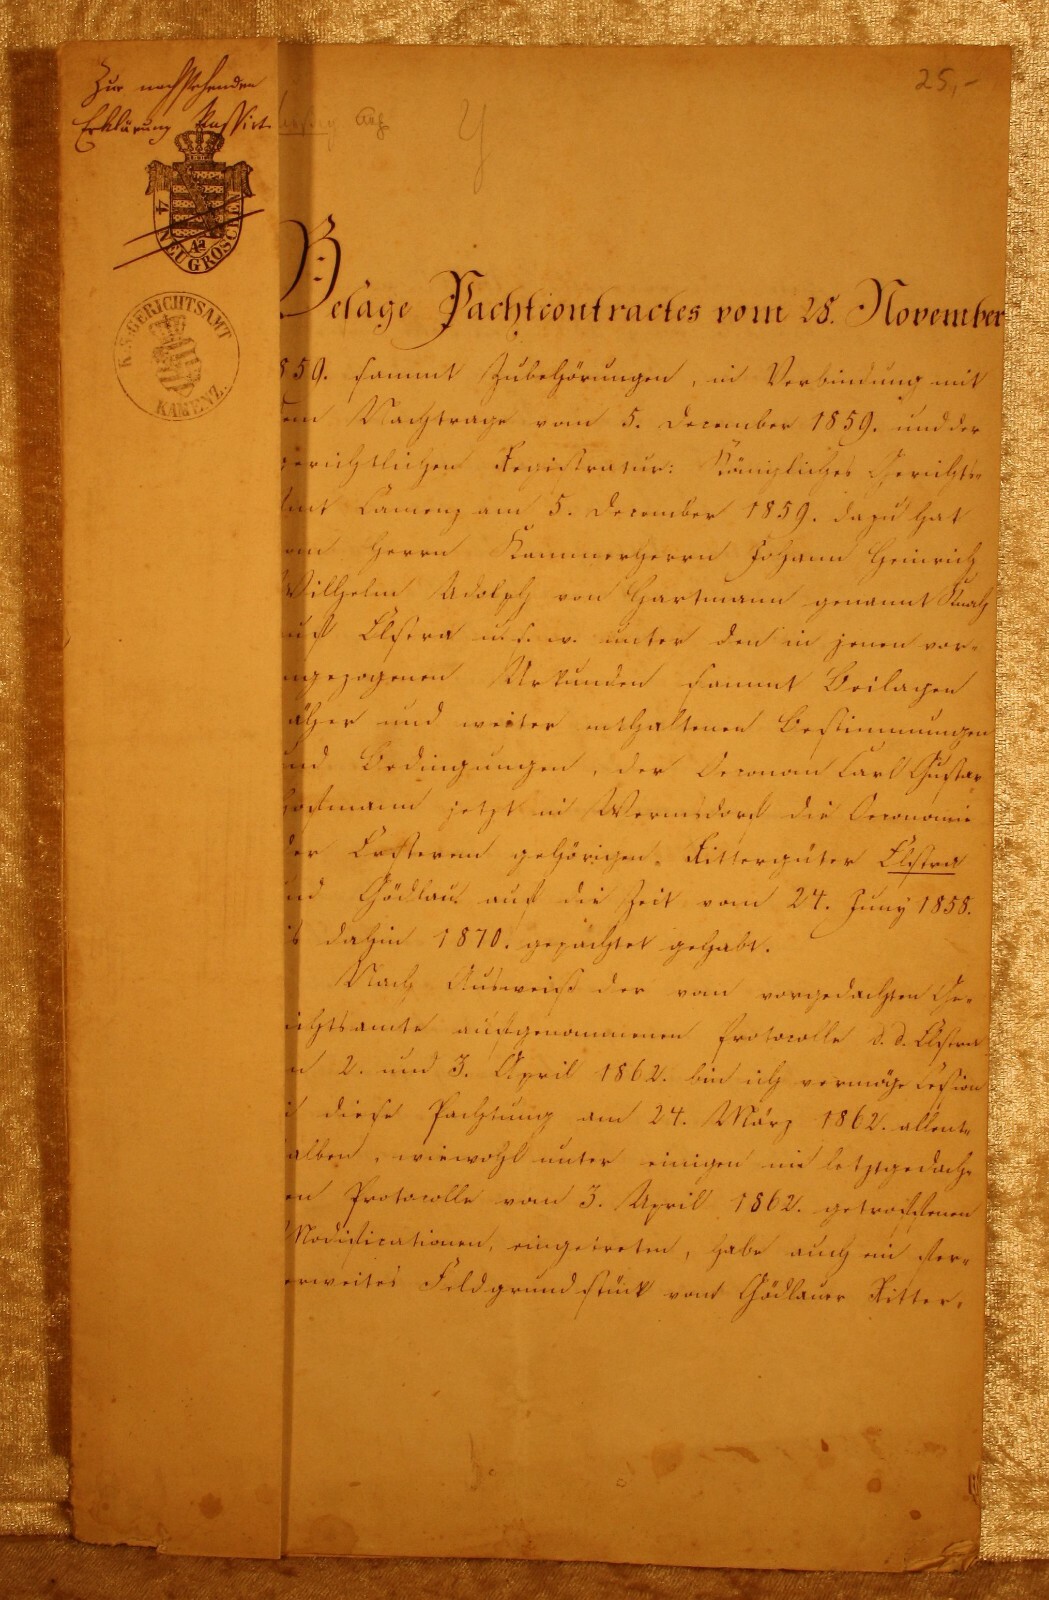 25,-
Zur nachstehenden
Erklärung Cassirt.
4
NEUGROSCHEN
Aa
K.S. GERICHTSAMT
KAMENZ.
Besage Pachtcontractes vom 28. November
859. sammt Zubehörungen, in Verbindung mit
em Nachtrage vom 5. December 1859. und der
gerichtlichen Registratur: Königliches Gerichts-
Amt Camenz am 5. December 1859. dazu hat
om Herrn Kammerherrn Johann Heinrich
Wilhelm Adolph von Hartmann genannt Knoch
auf Elstra u. s. w. unter den in jenen vor-
ngezogenen Urkunden sammt Beilagen
äher und weiter enthaltenen Bestimmungen
nd Bedingungen, der Oeconom Carl Gustav
Hofmann jetzt in Wermsdorf die Oeconomie
der Ersterem gehörigen Rittergüter Elstra
nd Gödlau auf die Zeit vom 24. Juny 1858.
is dahin 1870. gepachtet gehabt.
Nach Ausweiß der vom vorgedachten Ge-
ichtsamte aufgenommenen Protocolle d. d. Elstra
n 2. und 3. April 1862. bin ich vermöge Cession
diese Pachtung am 24. März 1862. allent-
halben, wiewohl unter einigen im letztgedach-
en Protocolle vom 3. April 1862. getroffenen
Modificationen, eingetreten, habe auch ein
erweites Feldgrundstück vom Gödlauer Ritter-